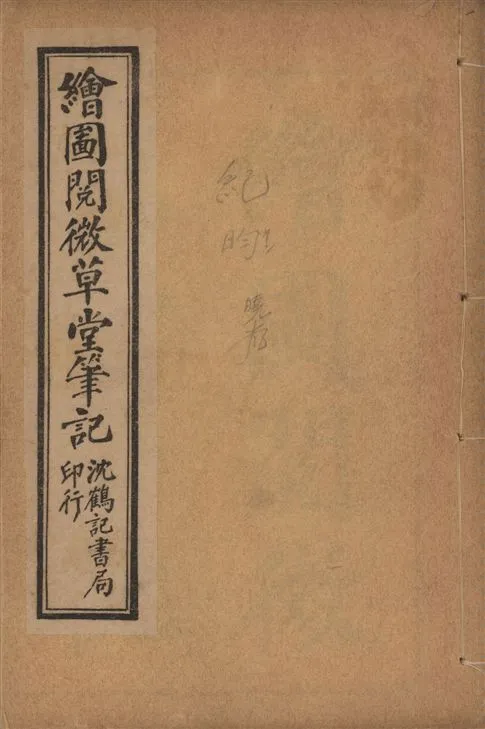 繪圖閱微草堂筆記
沈鶴記書局
印行
紀
昀